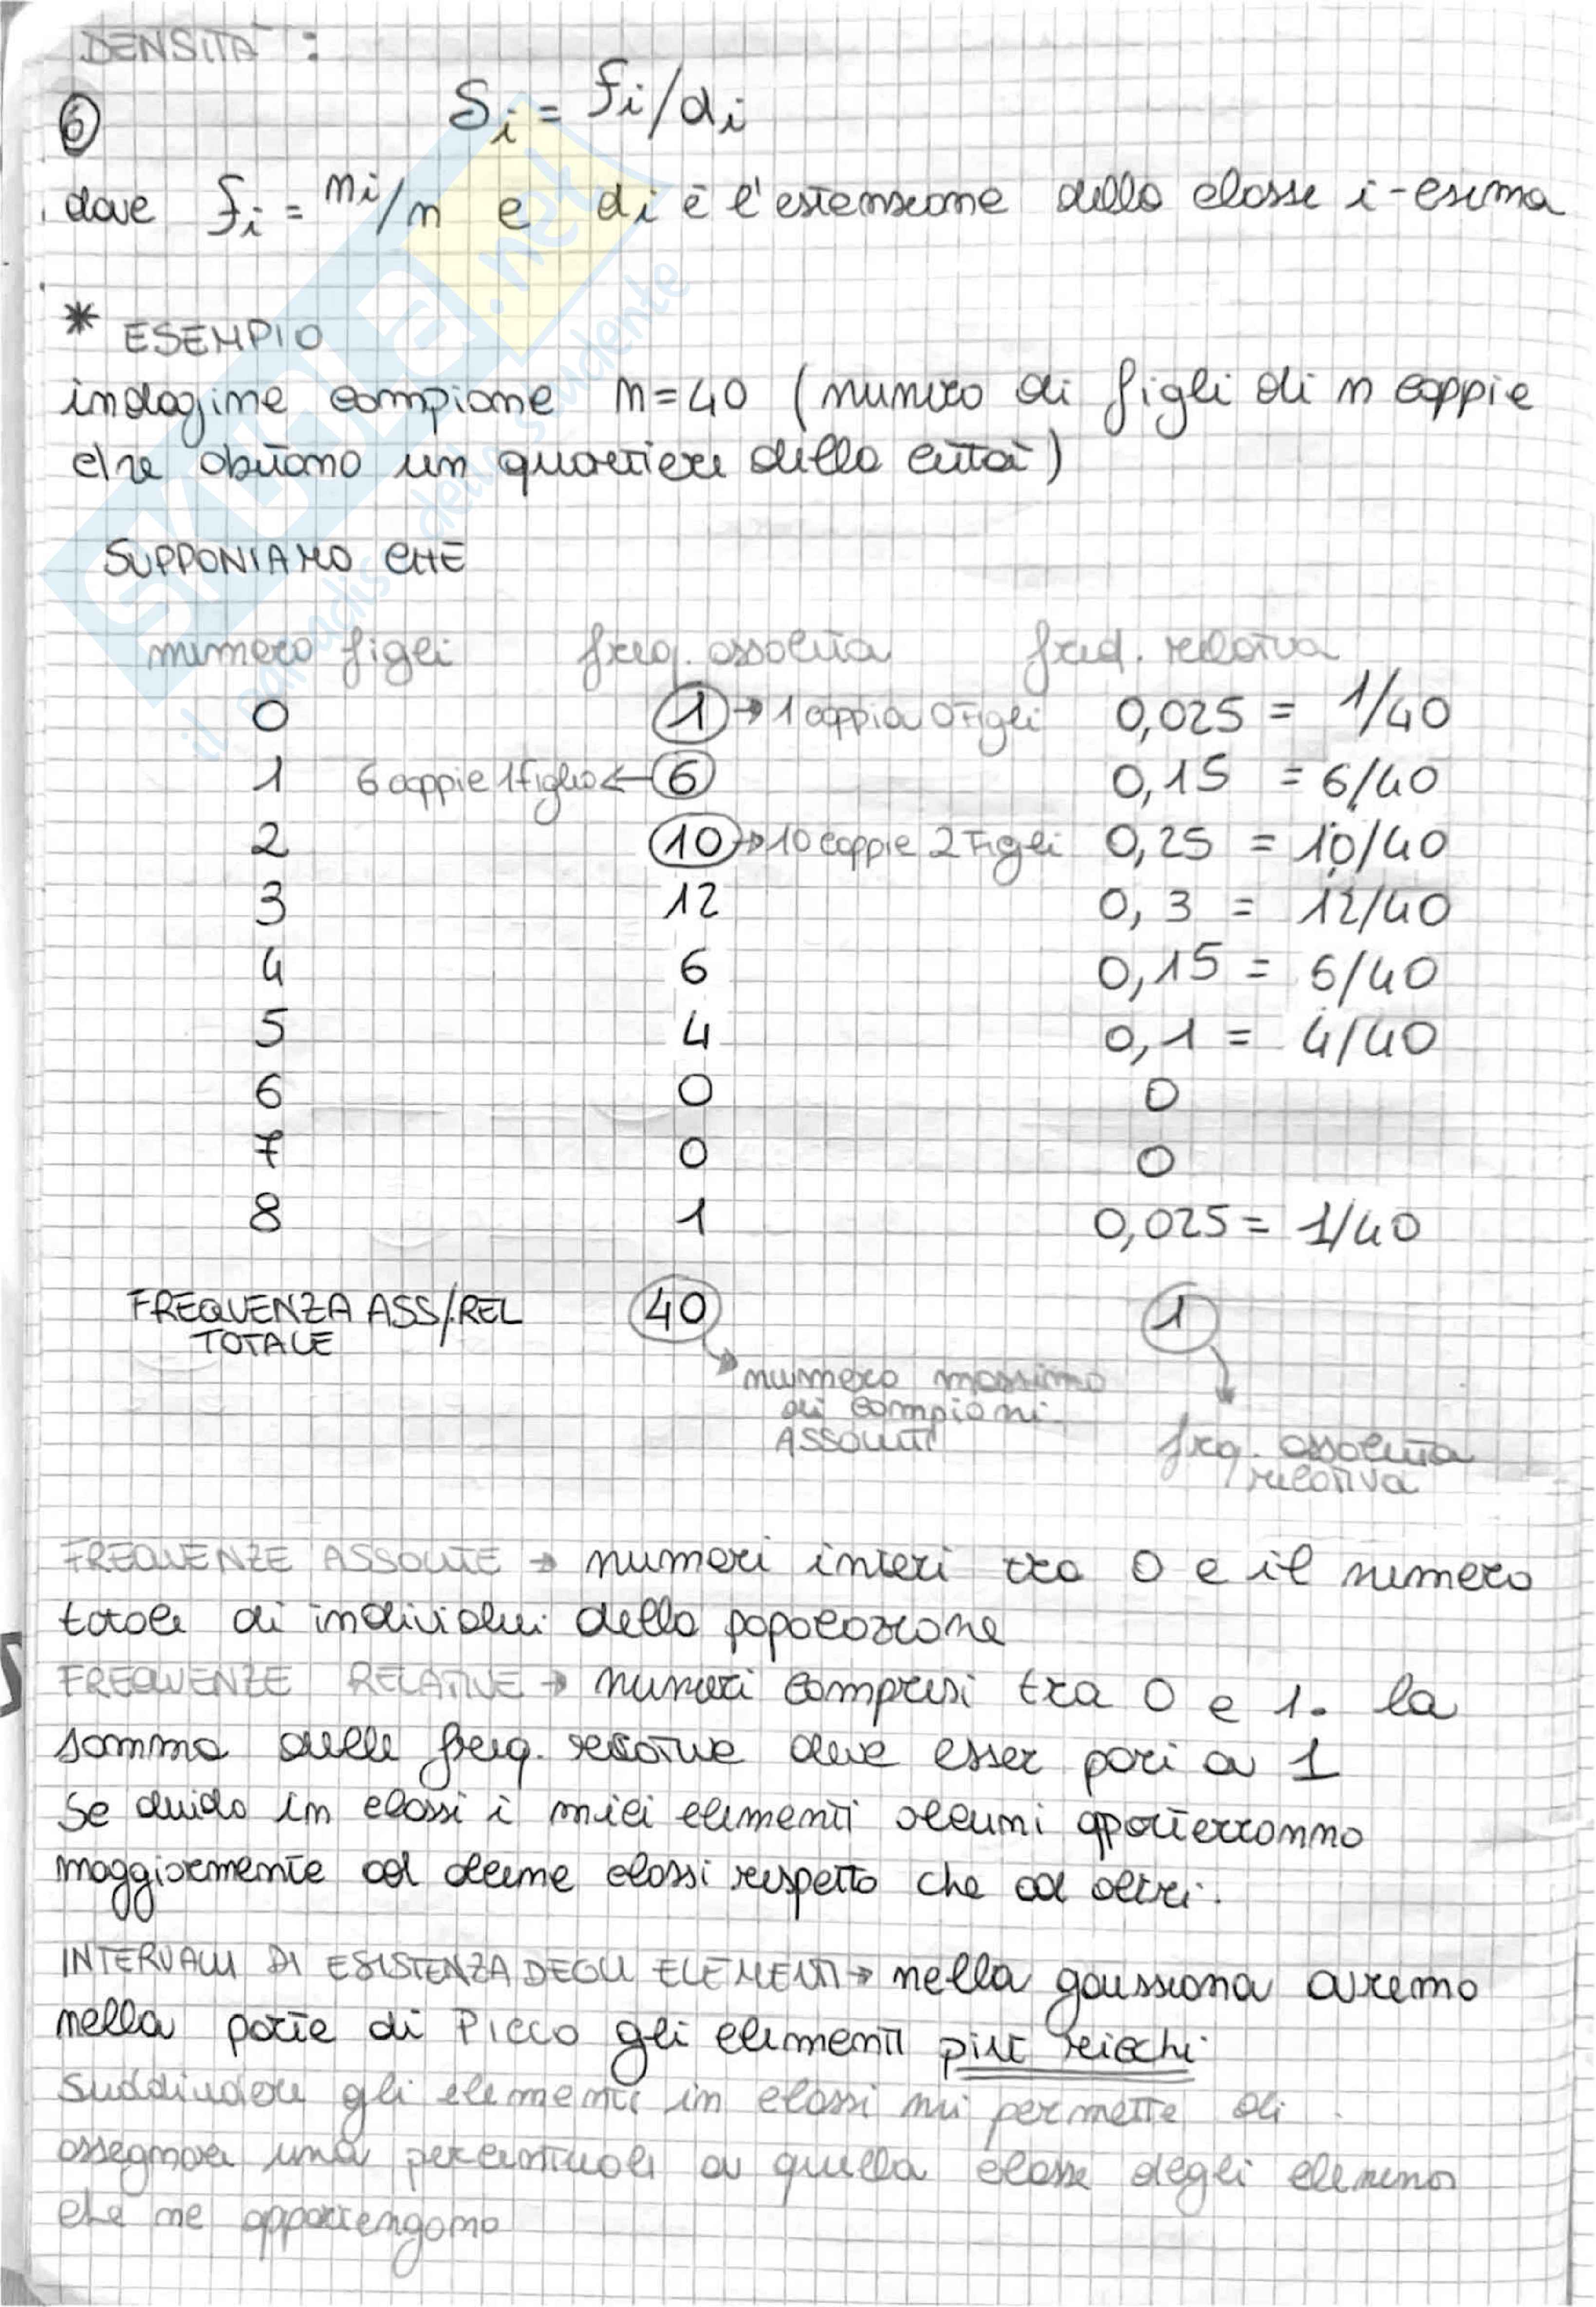 DENSITÀ :
6
δi = fi/di
dove fi = ni/n e di è l'estensione della classe i-esima
* ESEMPIO
indagine campione n=40 (numero di figli di n coppie
che abitano un quartiere della città)
SUPPONIAMO CHE
numero figli freq. assoluta freq. relativa
0 1 → 1 coppia 0 figli 0,025 = 1/40
1 6 coppie 1 figlio ← 6 0,15 = 6/40
2 10 → 10 coppie 2 Figli 0,25 = 10/40
3 12 0,3 = 12/40
4 6 0,15 = 6/40
5 4 0,1 = 4/40
6 0 0
7 0 0
8 1 0,025 = 1/40
FREQUENZA ASS/.REL 40 1
TOTALE
numero massimo
di campioni
ASSOLUTI
frq. assoluta
relativa
FREQUENZE ASSOLUTE → numeri interi tra 0 e il numero
totale di individui della popolazione
FREQUENZE RELATIVE → numeri compresi tra 0 e 1. la
somma delle freq. relative deve esser pari a 1
Se divido in classi i miei elementi alcuni apparterranno
maggiormente ad alcune classi rispetto che ad altri.
INTERVALLI DI ESISTENZA DEGLI ELEMENTI → nella gaussiana avremo
nella parte di Picco gli elementi più ricchi
Suddividere gli elementi in classi mi permette di
assegnare una percentuale a quella classe degli elementi
che ne appartengono
SKUOLA.net
il paradiso dello studente